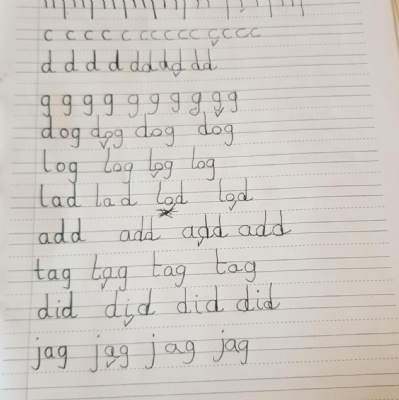 c c c c c c c c c c c c c c
d d d d d d d d d d
g g g g g g g g g g
dog dog dog dog
log log log log
lad lad lad lad
add add add add
tag tag tag tag
did did did did
jag jag jag jag